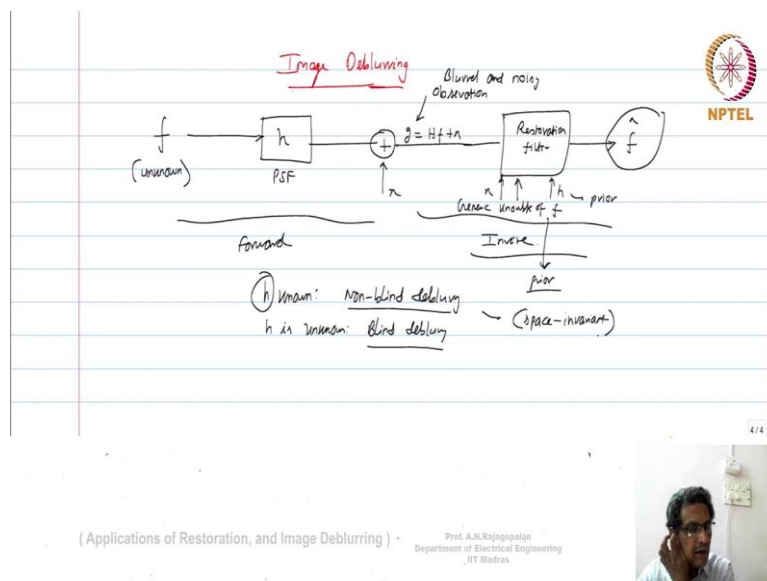 Image Deblurring
Blurred and noisy
observation
NPTEL
f
h
+
g = Hf + n
Restoration
filter
f̂
(unknown)
PSF
n
n
h
prior
Generic knowledge of f
forward
Inverse
prior
h known: Non-blind deblurring
(space-invariant)
h is unknown: Blind deblurring
4/4
( Applications of Restoration, and Image Deblurring )
Prof. A.N.Rajagopalan
Department of Electrical Engineering
IIT Madras